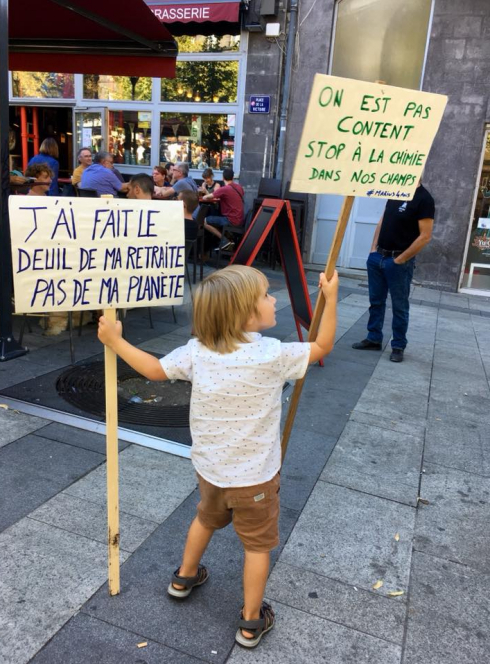 BRASSERIE
PLACE
DE LA
VICTOIRE
ON EST PAS
CONTENT
STOP À LA CHIMIE
DANS NOS CHAMPS
J'AI FAIT LE
DEUIL DE MA RETRAITE
PAS DE MA PLANÈTE